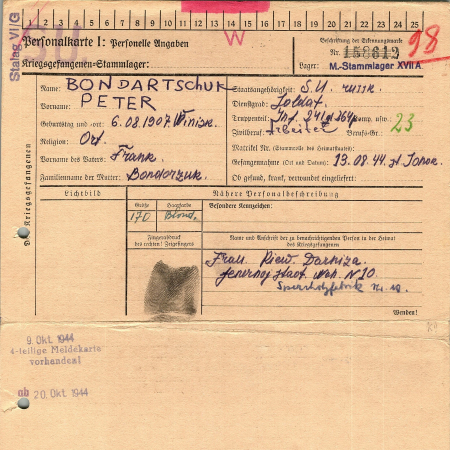 1 2 3 4 5 6 7 8 9 10 11 12 13 14 15 16 17 18 19 20 21 22 23 24 25
Stalag VI/G
W
Personalkarte I: Personelle Angaben
Kriegsgefangenen-Stammlager:
Beschriftung der Erkennungsmarke
Nr. 156612
Lager: M.-Stammlager XVII A
98
Name: BONDARTSCHUK
Vorname: PETER
Geburtstag und -ort: 6.08.1907
Religion: Ort.
Vorname des Vaters: Frank
Familienname der Mutter: Bonderzuk.
Staatsangehörigkeit: S.U. russ.
Dienstgrad: Soldat.
Truppenteil: Komp. usw.:
Zivilberuf: Arbeiter Berufs-Gr.: 23
Matrikel Nr. (Stammrolle des Heimatstaates):
Gefangennahme (Ort und Datum): 13.08.44
Ob gesund, krank, verwundet eingeliefert:
Des Kriegsgefangenen
Lichtbild
Nähere Personalbeschreibung
Größe Haarfarbe
170 Blond.
Besondere Kennzeichen:
Fingerabdruck
des rechten! Zeigefingers
Name und Anschrift der zu benachrichtigenden Person in der Heimat
des Kriegsgefangenen
Frau.
N 10
Sperrholzfabrik
Wenden!
9. Okt. 1944
4-teilige Meldekarte
vorhanden!
ab 20. Okt. 1944